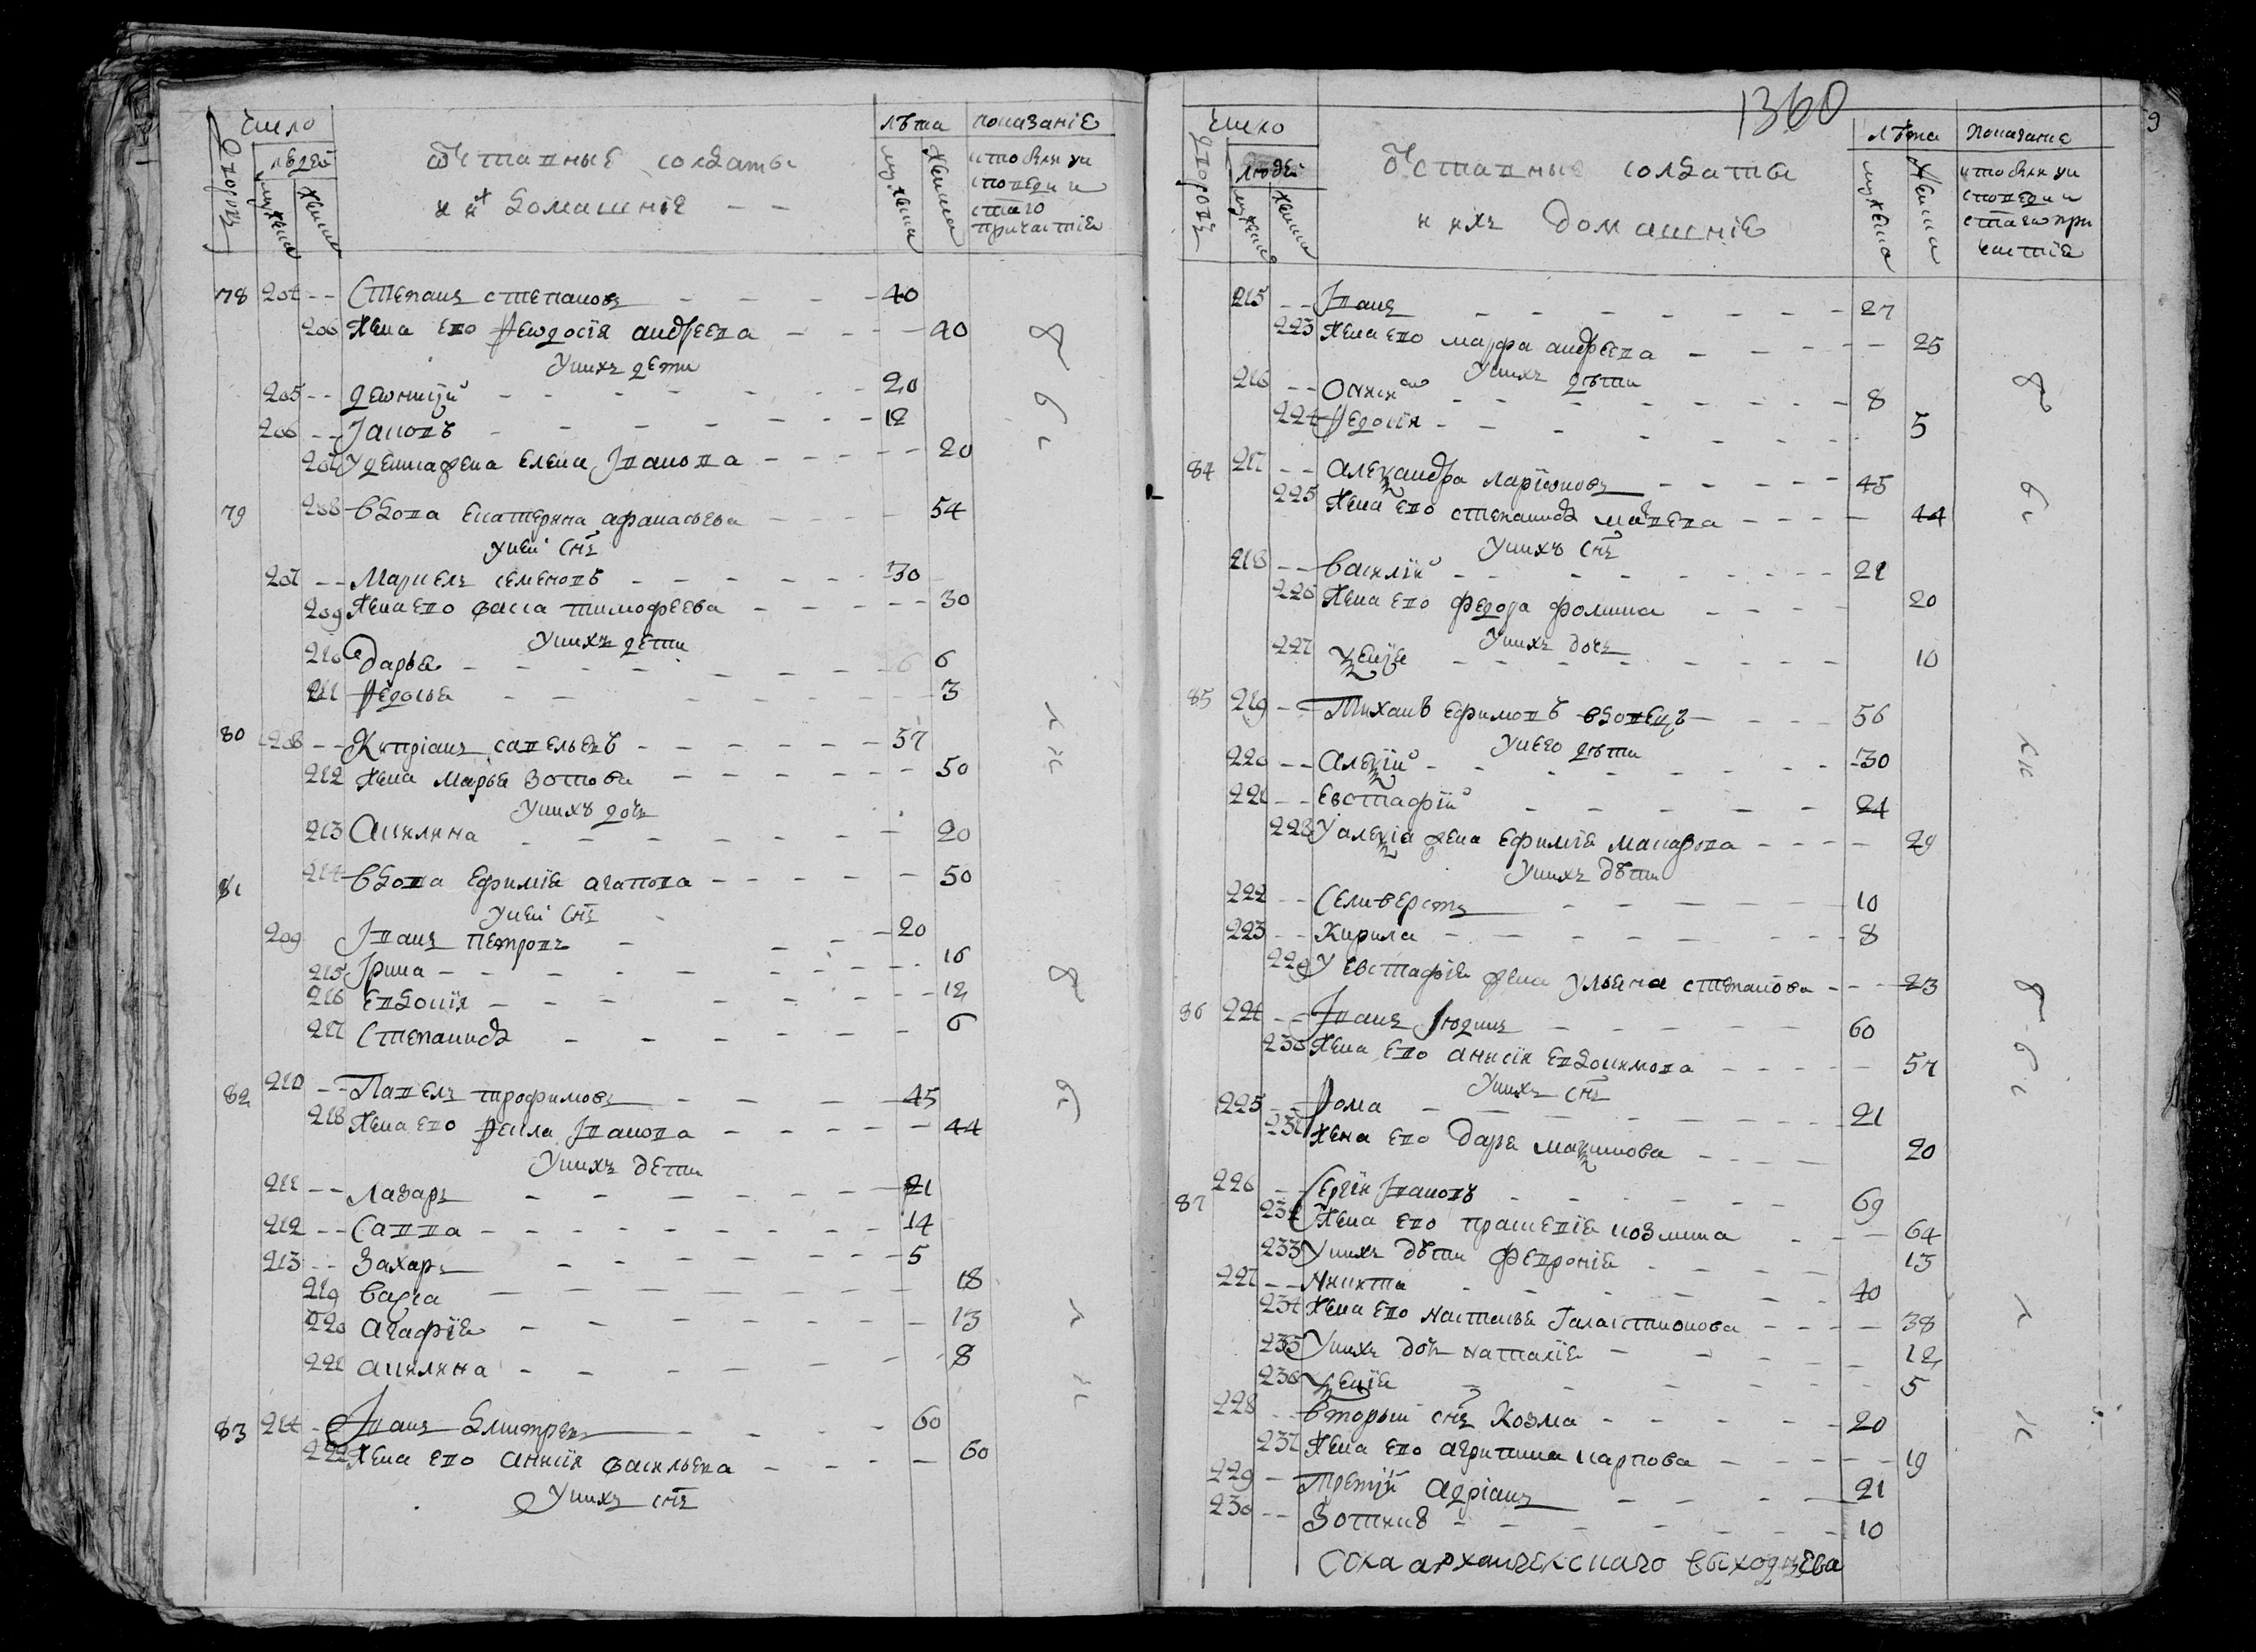 число
дворовъ
людей
мужеска
женска
Ѿставные солдаты
и их домашние
лѣта
мужеска
женска
показаніе
кто был у и
споведи и
стаго
причастиѧ
78 204 Степанъ степановъ 40
206 жена ево Ѳеѡдосїя андреева 40
У них дети
205 деѡнисїй 20
206 Іаковъ 12
207 У дениса жена Елена Іванова 20
79 208 вдова Екатерина афанасьева 54
у ней снъ
207 Маркелъ семеновъ 30
209 жена ево васса тимофеева 30
У нихъ дети
210 Дарья 6
211 Ѳедосья 3
80 208 Кипріанъ савельевъ 57
212 жена Марья Зотова 50
У нихъ доч
213 Акилина 20
81 214 вдова Ефимія агапова 50
у ней снъ
209 Іванъ петровъ 20
215 Ірина 16
216 Евдокїя 12
217 Степанида 6
82 210 Павелъ трофимовъ 45
218 жена ево Ѳекла Іванова 44
У нихъ дети
211 Лазарь 21
212 Савва 14
213 Захаръ 5
219 васса 18
220 агафїя 13
221 акилина 8
83 214 Іванъ дмитревъ 60
222 жена ево Анисїя васильева 60
У нихъ снъ
1360
9
число
дворовъ
людей
мужеска
женска
Ѿставные солдаты
и ихъ домашніе
лѣта
мужеска
женска
показание
кто был у и
споведи и
стаго при
частия
215 Іванъ 27
223 жена ево марфа андреева 25
У нихъ дѣти
216 8
224 Ѳедосїя 5
84 217 Александра ларїоновъ 45
225 жена ево степанида матвева 44
У нихъ снъ
218 василїй 21
226 жена ево федора фомина 20
У нихъ дочь
227 ѯенїя 10
85 219 Михаил ефимовъ вдовецъ 56
У нево дѣти
220 Алеѯїй 30
221 Евстафїй 24
228 У алеѯіа жена Ефимія макарова 29
У нихъ дѣти
222 Селиверстъ 10
223 Кирила 8
229 У евстафія жена ульяна степанова 23
86 224 Іванъ Юдинъ 60
230 жена ево анисїя евдокимова 57
У нихъ снъ
225 Ѳома 21
231 жена ево Дарья маѯимова 20
87 226 Сергїй Івановъ 69
232 жена ево прасковія козмина 64
233 У нихъ дѣти феврония 13
227 Никита 40
234 жена ево настасья Галактионова 38
235 У нихъ дочь наталїя 12
236 ѯенїя 5
228 вторый снъ Козма 20
237 жена ево агрипина карпова 19
229 третїй адріанъ 21
230 Зотикъ 10
села архангелскаго выходцева